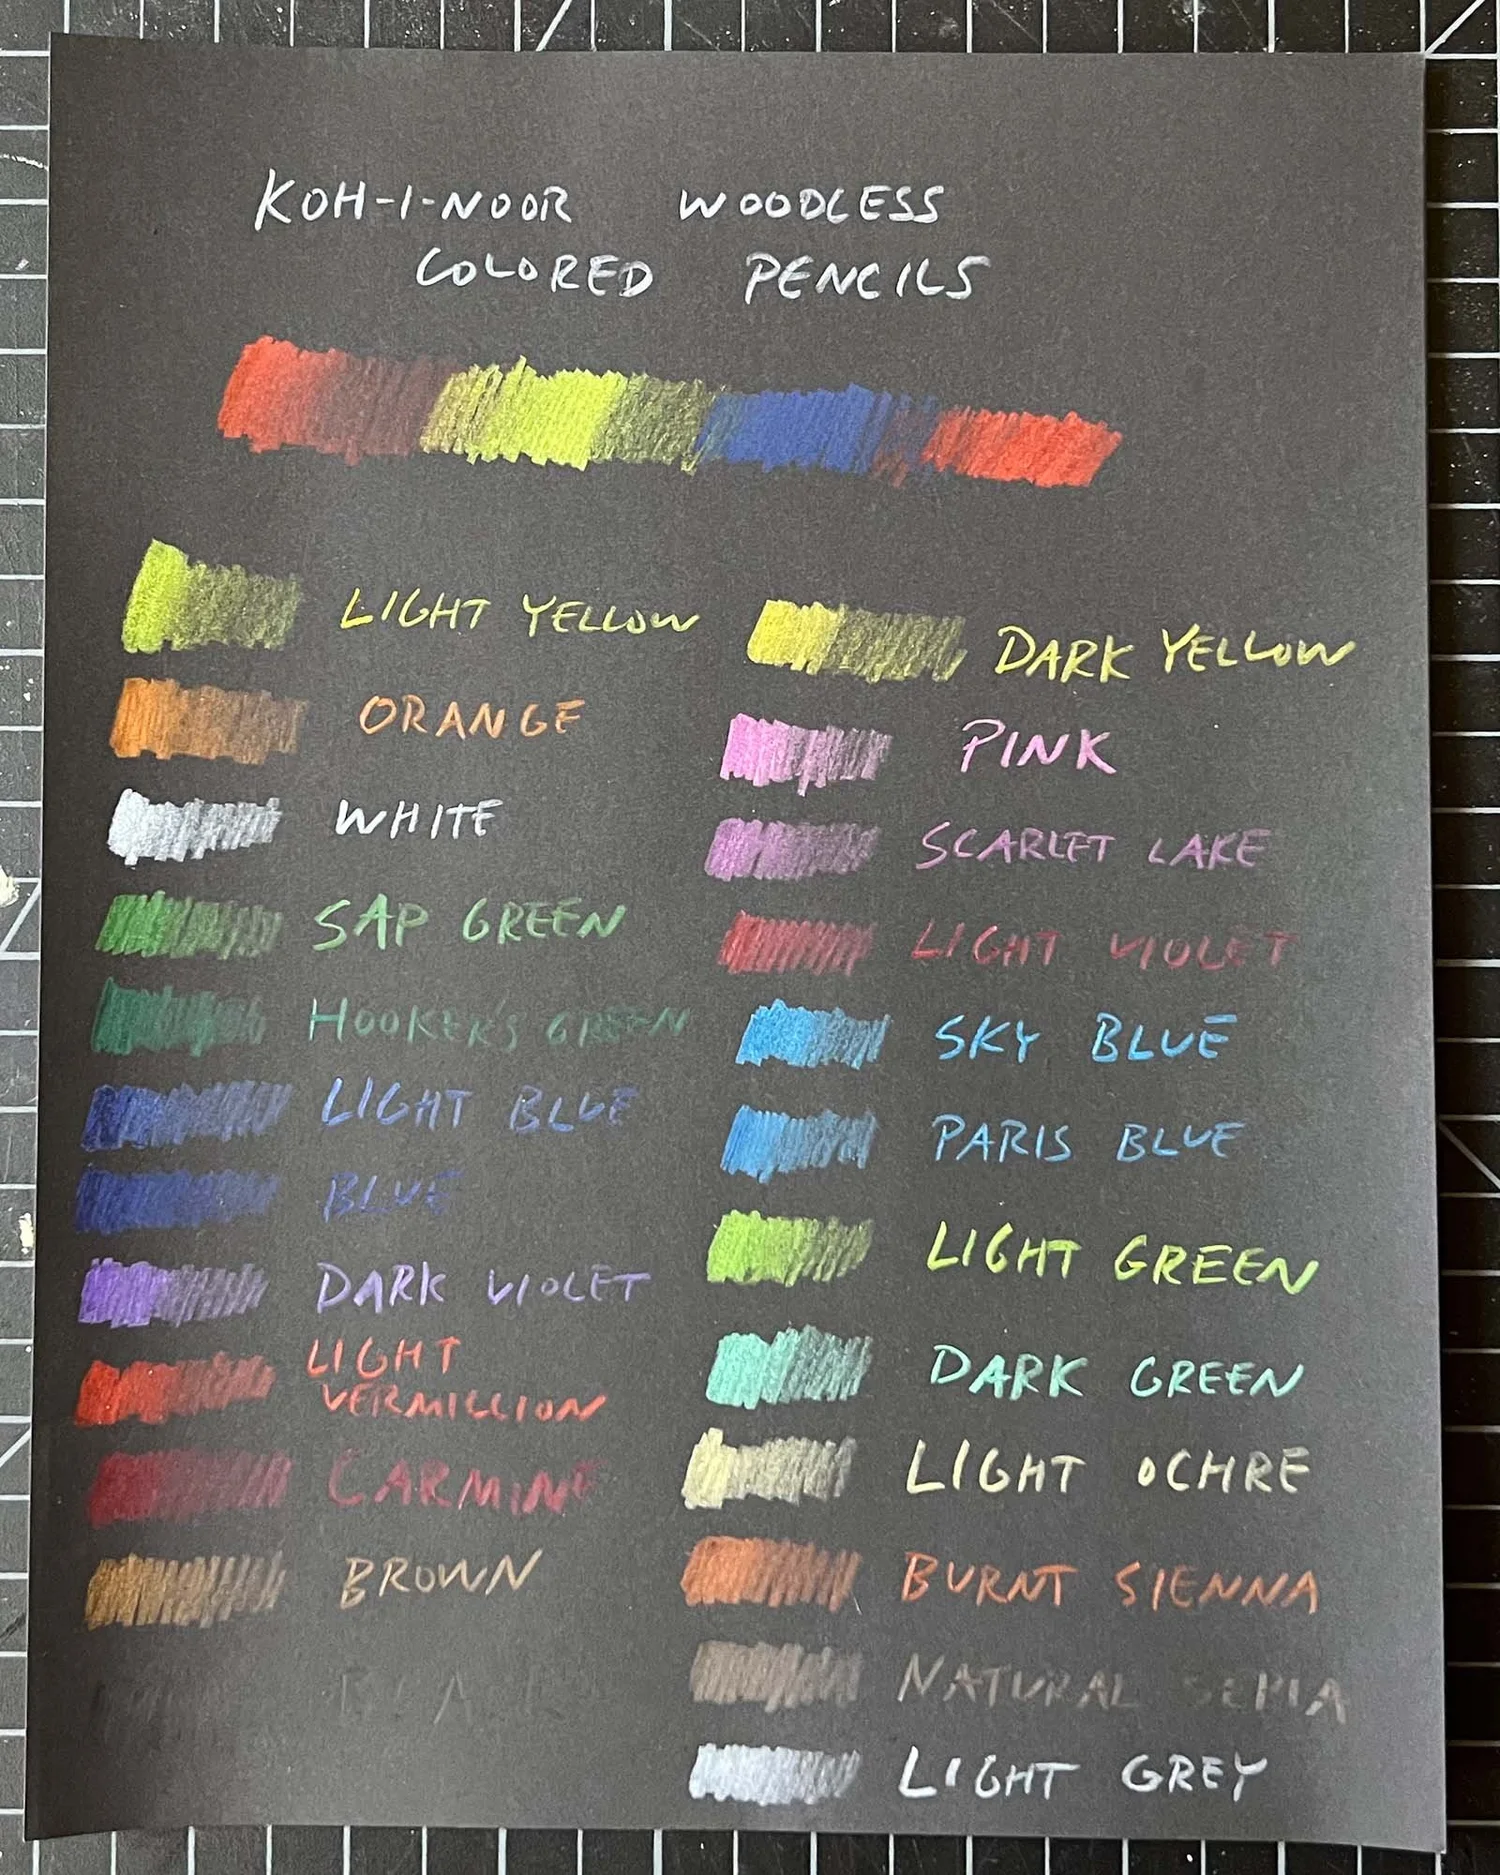 KOH-I-NOOR WOODLESS
COLORED PENCILS
LIGHT YELLOW
ORANGE
WHITE
SAP GREEN
HOOKER'S GREEN
LIGHT BLUE
BLUE
DARK VIOLET
LIGHT
VERMILLION
CARMINE
BROWN
DARK YELLOW
PINK
SCARLET LAKE
LIGHT VIOLET
SKY BLUE
PARIS BLUE
LIGHT GREEN
DARK GREEN
LIGHT OCHRE
BURNT SIENNA
NATURAL SEPIA
LIGHT GREY